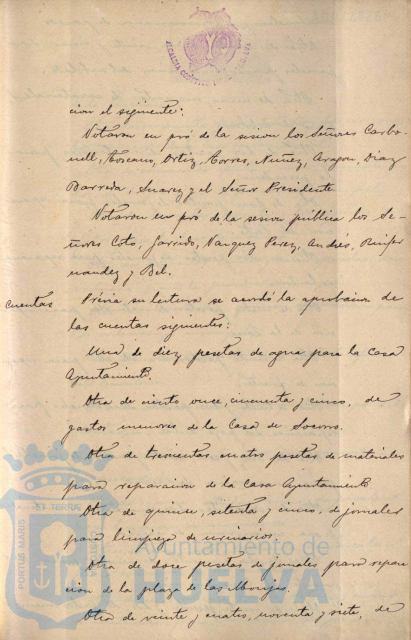 ALCALDIA CONSTITUCIONAL HUELVA
cion el siguiente:
Votaron en pró de la sesion los Señores Carbo-
nell, Toscano, Ortiz, Torres, Nuñez, Aragon, Diaz
Barreda, Suarez y el Señor Presidente
Votaron en pró de la sesion pública los Se-
ñores Coto, Garrido, Vazquez Perez, Andrés,
nandez y Bel.
cuentas
Prévia su lectura se acordó la aprobacion de
las cuentas siguientes:
Una de diez pesetas de agua para la Casa
Ayuntamiento.
Otra de ciento once, cincuenta y cinco, de
gastos menores de la Casa de Socorro.
Otra de trescientas cuatro pesetas de materiales
para reparacion de la Casa Ayuntamiento
Otra de quince, setenta y cinco, de jornales
para limpieza de urinarios.
Otra de doce pesetas de jornales para repara
cion de la plaza de las Monjas.
Otra de veinte y cuatro, noventa y siete, de
PORTUS MARIS
ET TERRÆ
Ayuntamiento de
HUELVA